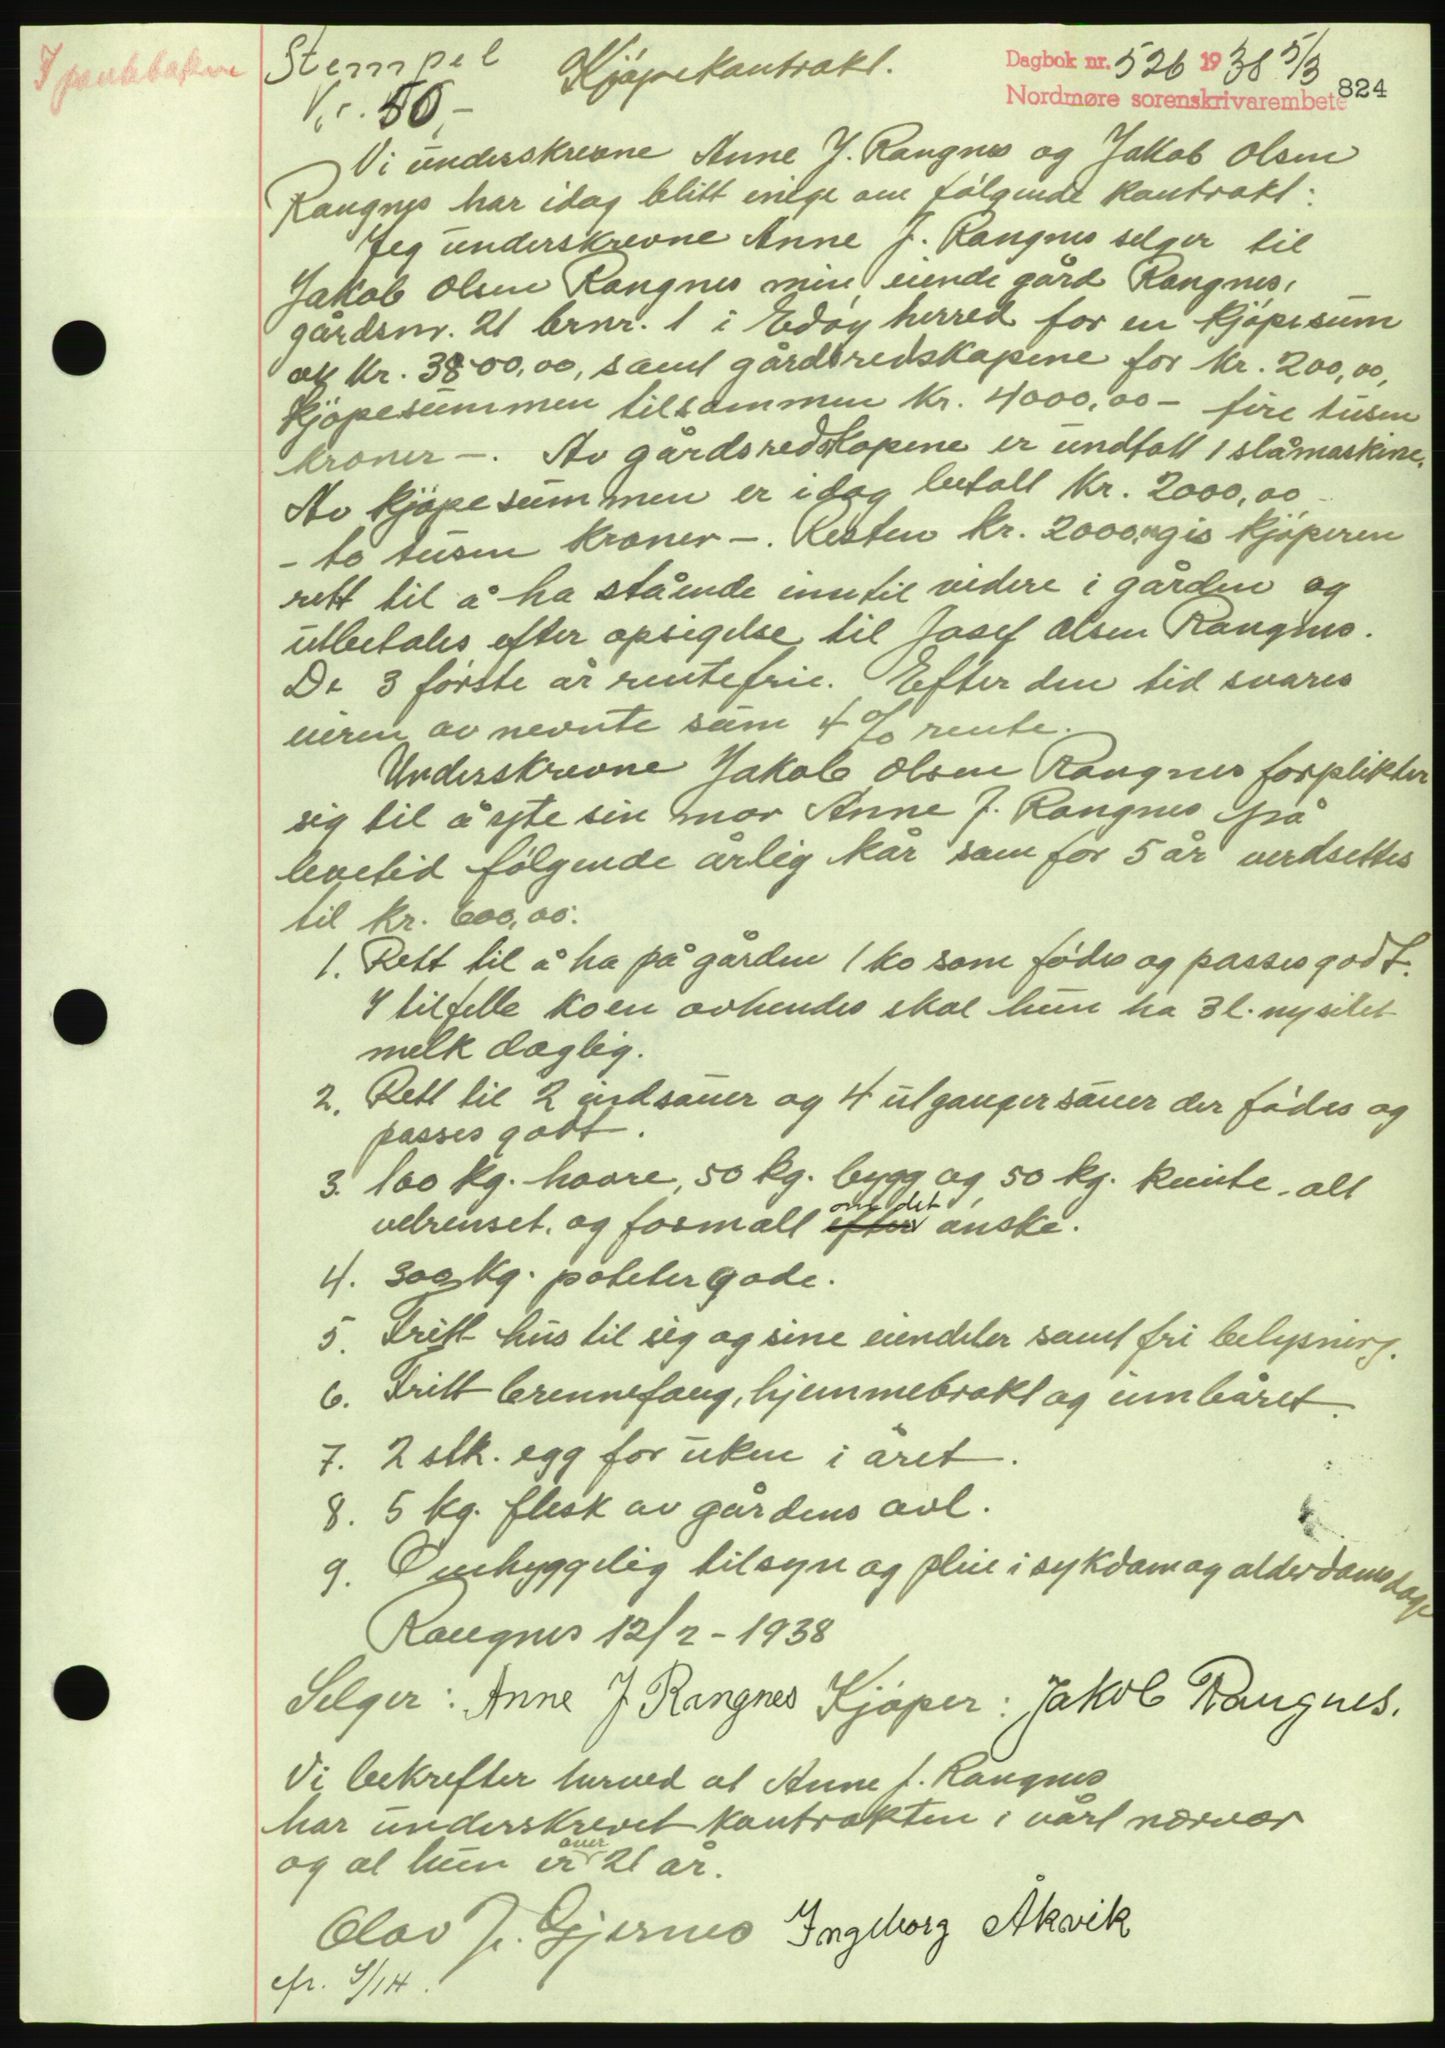 I pantebøkene
Stempel
Kr. 50,-
Kjøpekontrakt.
Dagbok nr. 526 1938 5/3
Nordmøre sorenskrivarembete
824
Vi underskrevne Anne J. Rangnes og Jakob Olsen
Rangnes har idag blitt enige om følgende kontrakt:
Jeg underskrevne Anne J. Rangnes selger til
Jakob Olsen Rangnes min eiende gård Rangnes,
gårdsnr. 21 brnr. 1 i Edøy herred for en kjøpesum
av kr. 3800,00, samt gårdsredskapene for kr. 200,00,
kjøpesummen tilsammen kr. 4000,00 - fire tusen
kroner -. Av gårdsredskapene er undtatt 1 slåmaskine.
Av kjøpesummen er idag betalt kr. 2000,00 -
- to tusen kroner -. Resten kr. 2000,00 gis kjøperen
rett til å ha stående inntil videre i gården og
utbetales efter opsigelse til Josef Olsen Rangnes.
De 3 første år rentefrie. Efter den tid svares
eieren av nevnte sum 4 % rente.
Underskrevne Jakob Olsen Rangnes forplikter
sig til å yte sin mor Anne J. Rangnes på
levetid følgende årlig kår som for 5 år verdsettes
til kr. 600,00:
1. Rett til å ha på gården 1 ko som fødes og passes godt.
I tilfelle koen avhendes skal hun ha 3 l. nysilet
melk daglig.
2. Rett til 2 indsauer og 4 utgangersauer der fødes og
passes godt.
3. 100 kg. havre, 50 kg. bygg og 50 kg. kveite, alt
velrenset, og formalt efter om det ønske.
4. 300 kg. poteter gode.
5. Fritt hus til sig og sine eiendeler samt fri belysning.
6. Fritt brennefang, hjemmebrakt og innbåret.
7. 2 stk. egg for uken i året.
8. 5 kg. flesk av gårdens avl.
9. Omhyggelig tilsyn og pleie i sykdom og alderdomsdage
Rangnes 12/2 - 1938
Selger: Anne J Rangnes Kjøper: Jakob Rangnes.
Vi bekrefter herved at Anne J. Rangnes
har underskrevet kontrakten i vårt nærvær
og at hun er over 21 år.
Olav J. Gjernes Ingeborg Åkvik